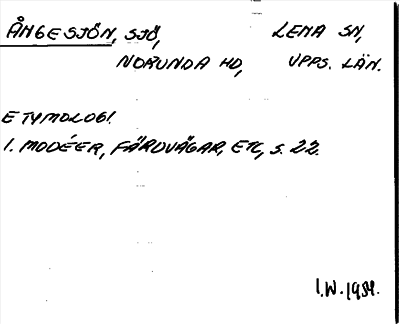 ÅNGESJÖN, SJÖ, LENA SN,
NORUNDA HD, UPPS. LÄN.
ETYMOLOGI.
I. MODÉER, FÄRDVÄGAR, ETC, S. 22.
I.W. 1984.